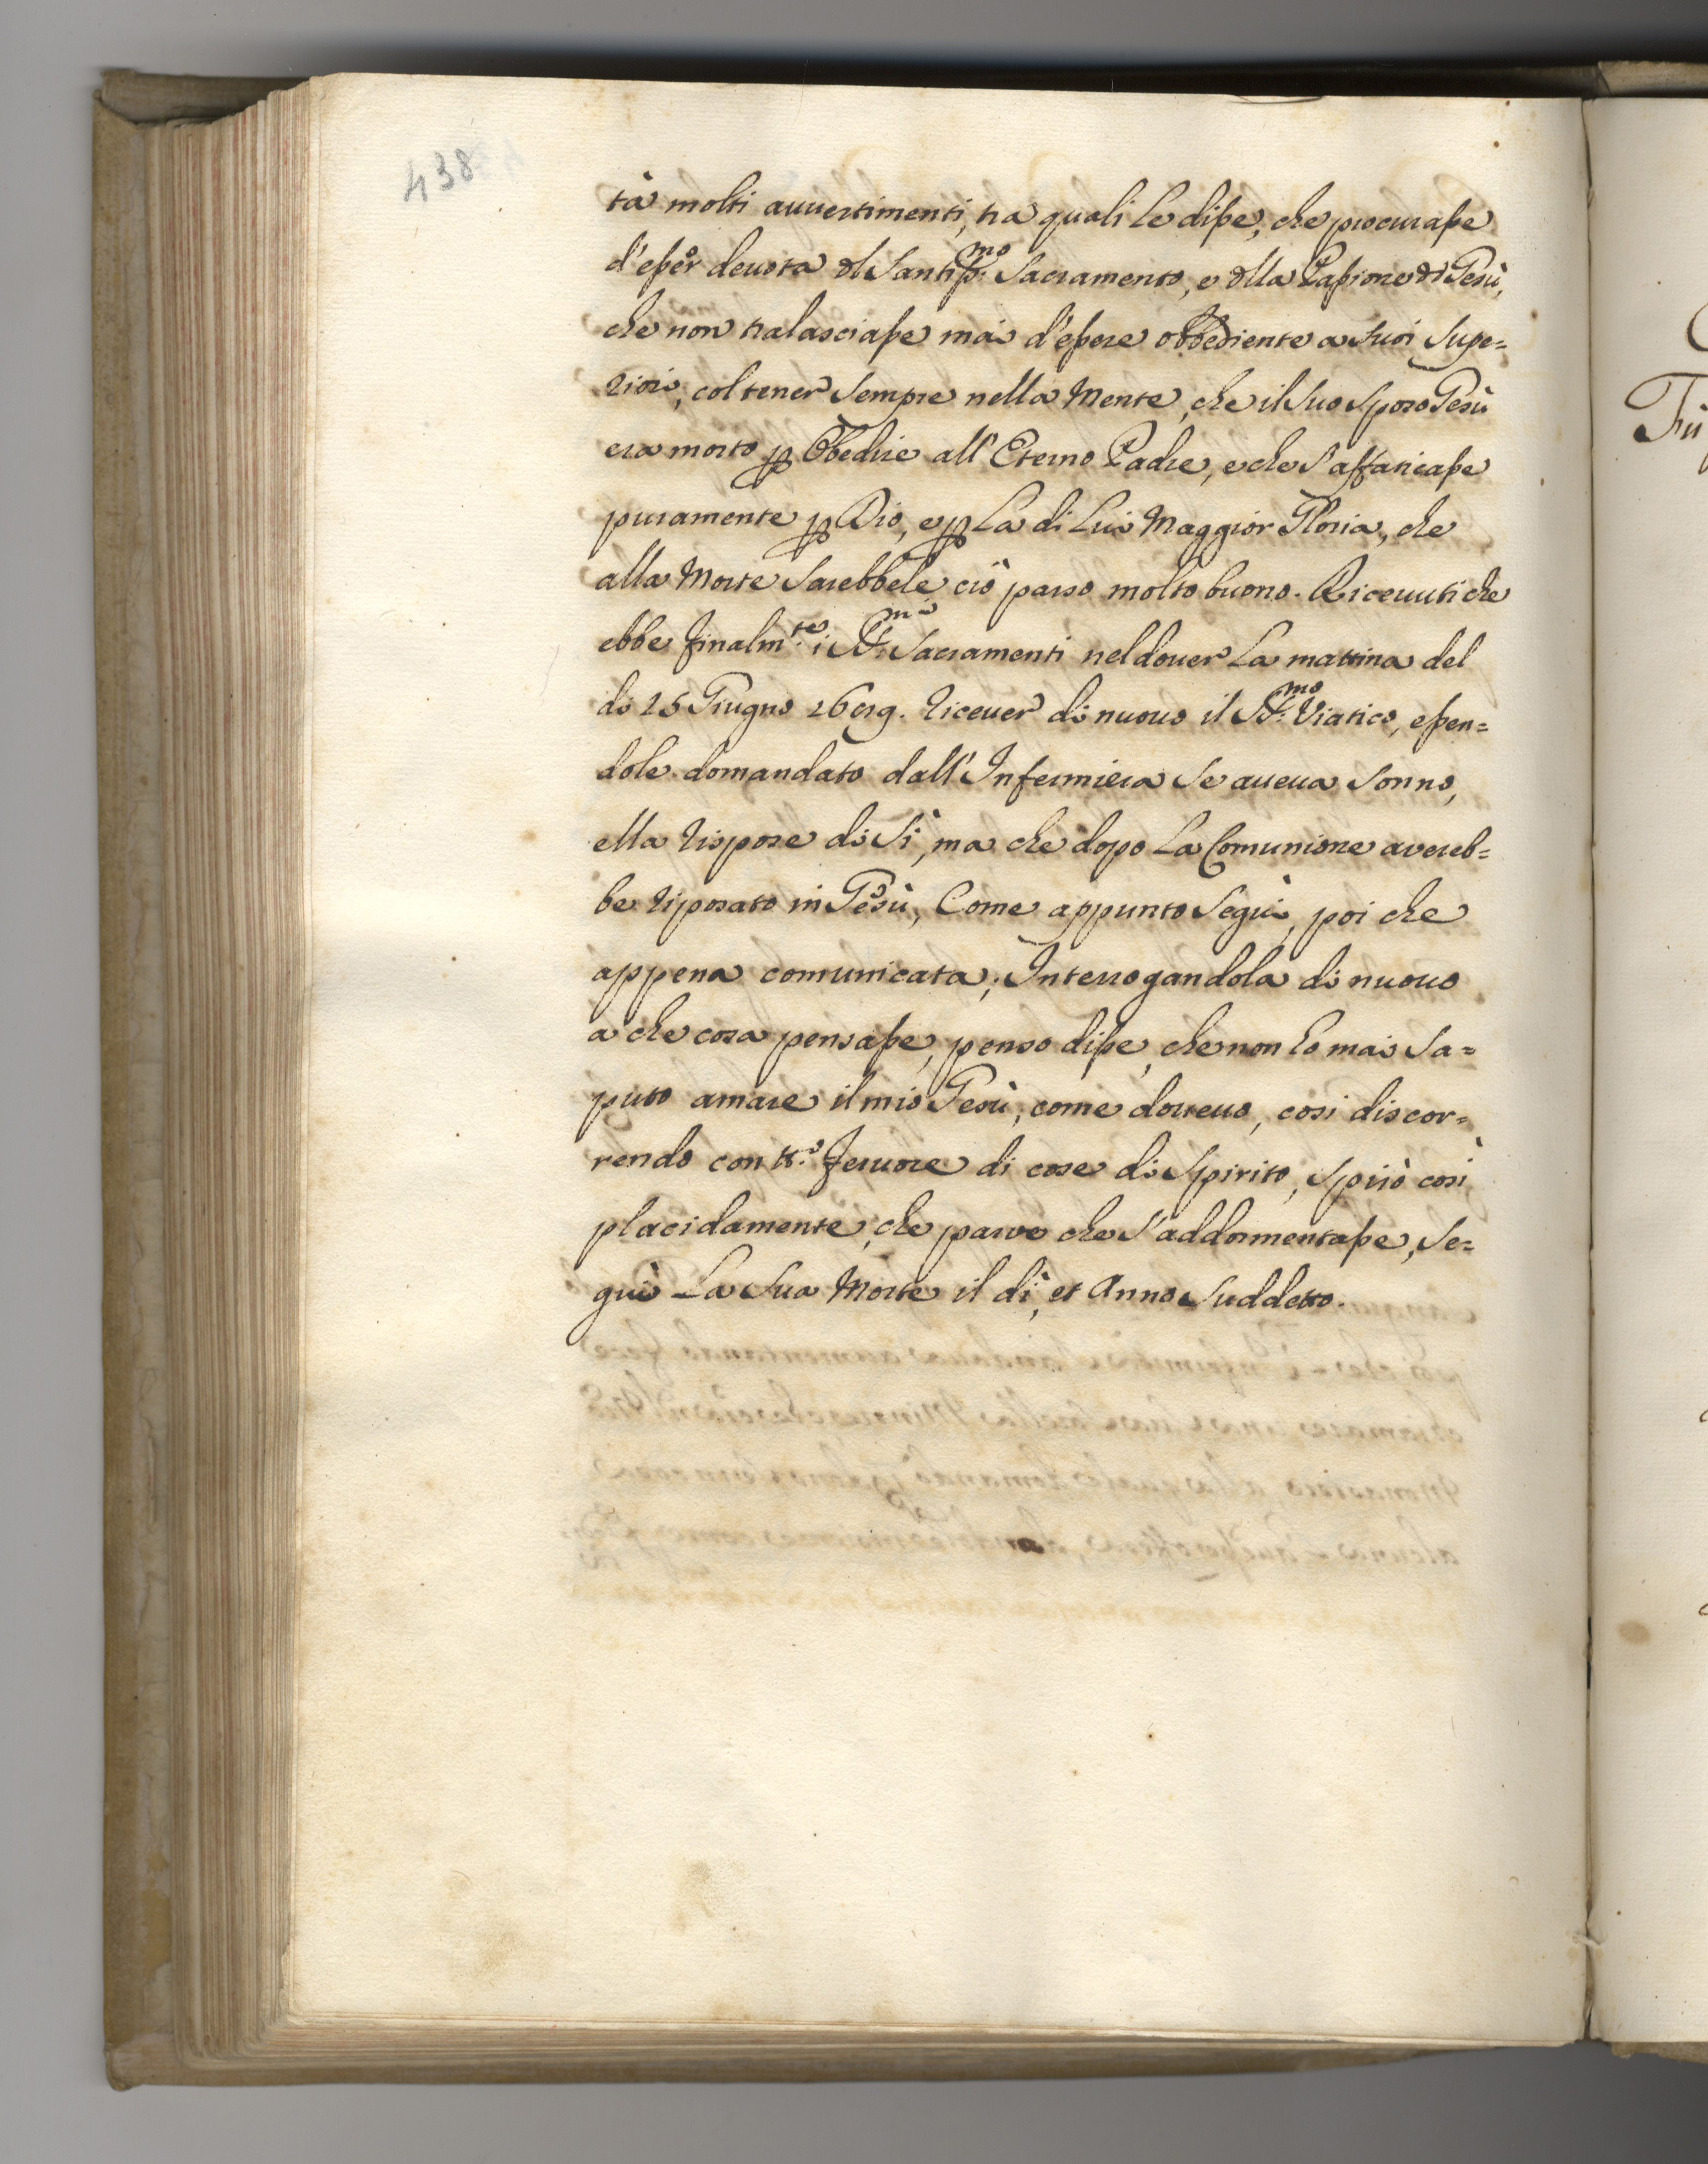 438
tà molti auuertimenti, tra quali le disse, che procurasse
d'esser deuota del Santiss:mo Sacramento, e della Passione di Gesù,
che non tralasciasse mai d'essere obbediente a suoi Supe=
riori, col tener sempre nella Mente, che il suo Sposo Gesù
era morto p Obedire all'Eterno Padre, e che s'affaticasse
puramente p Dio, e p La di Lui Maggior Gloria, che
alla Morte Sarebbele ciò parso molto buono. Riceuuti che
ebbe finalm:te i SS:mi Sacramenti nel douer La mattina del
dì 25 Giugno ricever di nuouo il SS:mo Viatico, essen=
dole domandato dall'Infermiera Se aueua Sonno,
ella rispose di Sì, ma che dopo La Comunione avereb=
be riposato in Gesù, Come appunto Seguì, poi che
appena comunicata; Interrogandola di nuouo
a che cosa pensasse, penso disse, che non ho mai Sa=
puto amare il mio Gesù, come doueuo, così discor=
rendo con tt:o feruore di cose di Spirito, Spirò così
placidamente, che parve che s'addormentasse, Se=
guì La Sua Morte il dì, et Anno Suddetto.
Fù